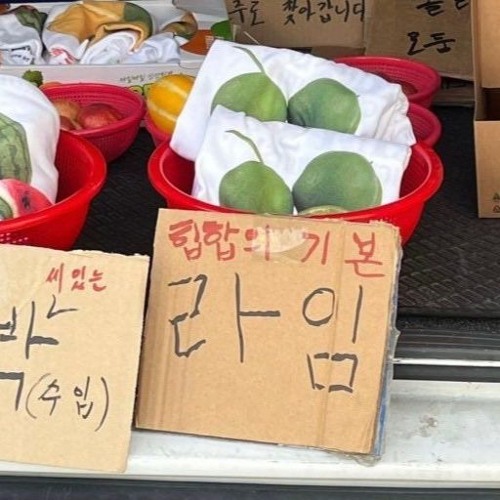 주로 찾아갑니다
모둠
씨 있는
박
(수입)
힙합의 기본
라임